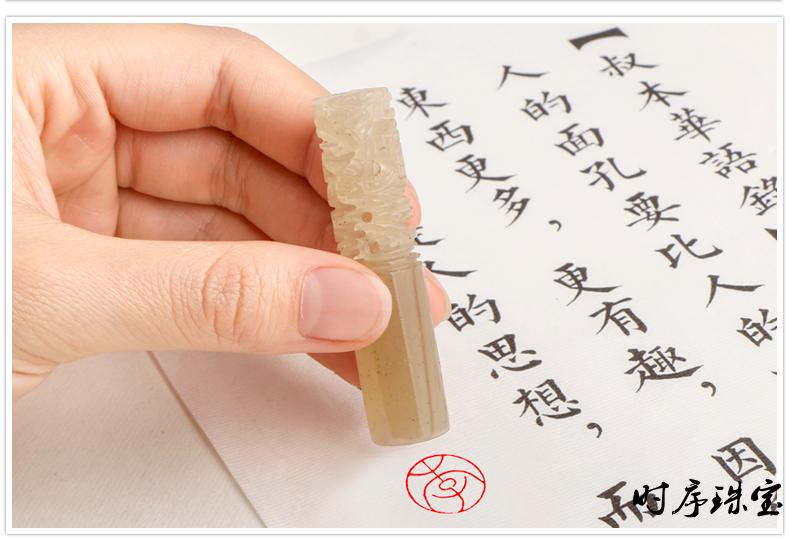 【叔本華語錄】
人的面孔要比人的
東西更多，更有趣，因
人的思想，而
时序珠宝